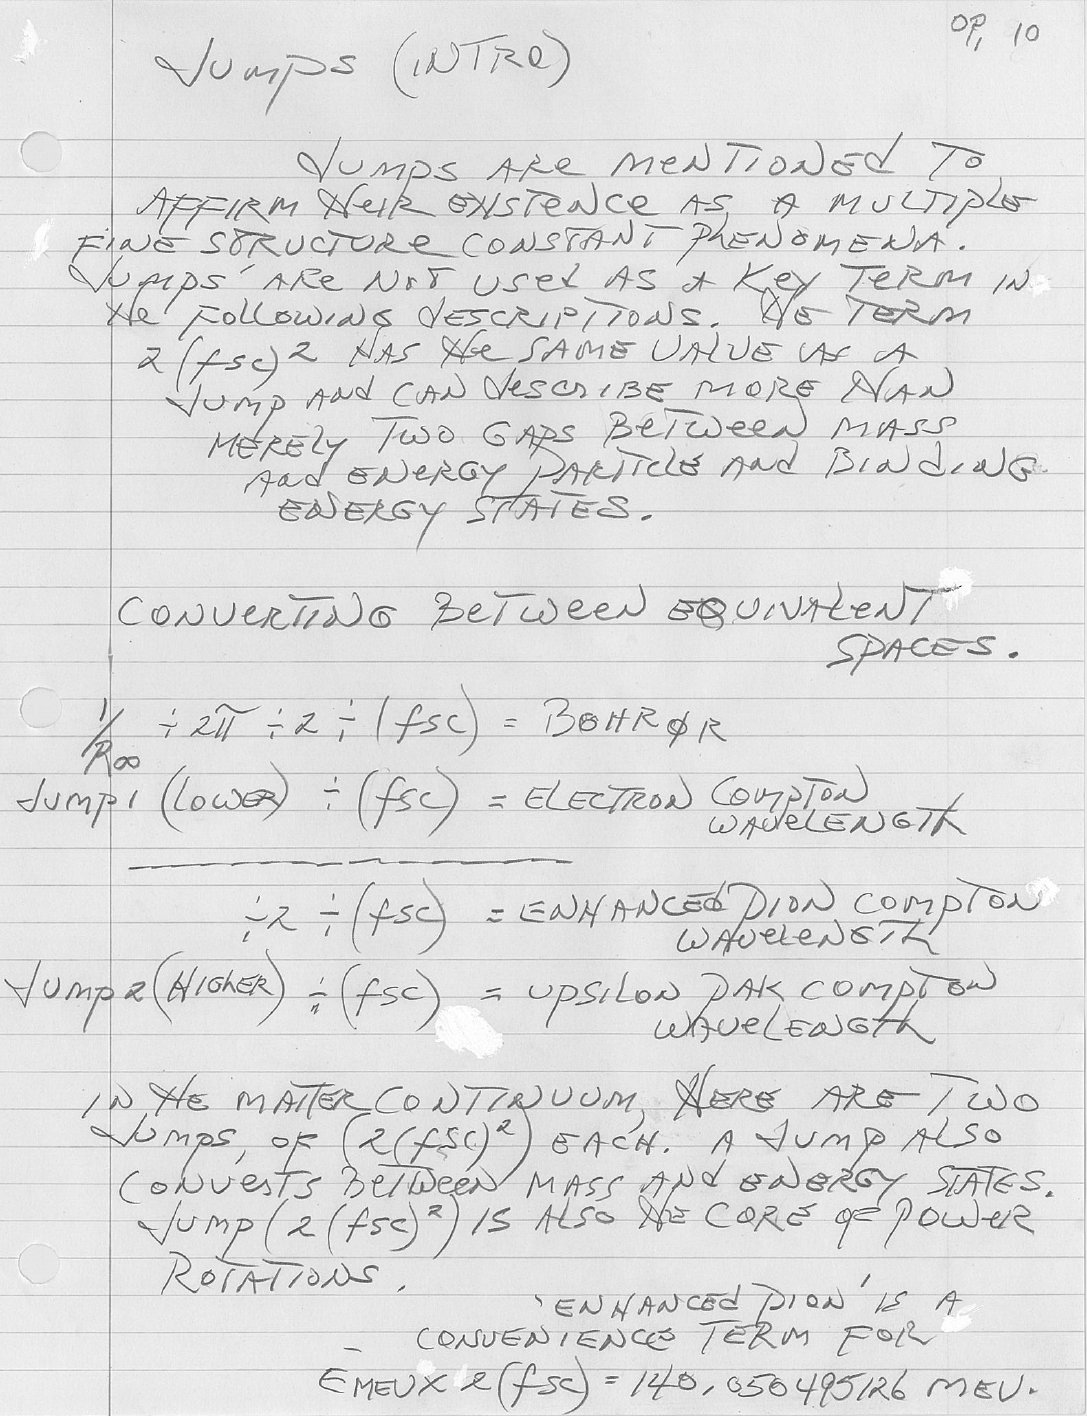 OP. 10
JUMPS (INTRO)
JUMPS ARE MENTIONED TO
AFFIRM THEIR EXISTENCE AS A MULTIPLE
FINE STRUCTURE CONSTANT PHENOMENA.
'JUMPS' ARE NOT USED AS A KEY TERM IN
THE FOLLOWING DESCRIPTIONS. THE TERM
2(fsc)² HAS THE SAME VALUE AS A
JUMP AND CAN DESCRIBE MORE THAN
MERELY TWO GAPS BETWEEN MASS
AND ENERGY PARTICLE AND BINDING
ENERGY STATES.
CONVERTING BETWEEN EQUIVALENT
SPACES.
1/R∞ ÷ 2π ÷ 2 ÷ (fsc) = BOHR ϕ R
JUMP 1 (LOWER) ÷ (fsc) = ELECTRON COMPTON
WAVELENGTH
÷ 2 ÷ (fsc) = ENHANCED PION COMPTON
WAVELENGTH
JUMP 2 (HIGHER) ÷ (fsc) = UPSILON PAK COMPTON
WAVELENGTH
IN THE MATTER CONTINUUM, THERE ARE TWO
JUMPS, OF (2(fsc)²) EACH. A JUMP ALSO
CONVERTS BETWEEN MASS AND ENERGY STATES.
JUMP (2(fsc)²) IS ALSO THE CORE OF POWER
ROTATIONS.
'ENHANCED PION' IS A
CONVENIENCE TERM FOR
E⁻ MEV X 2(fsc) = 140.050495126 MEV.